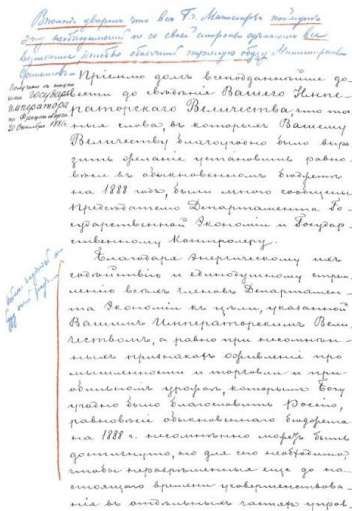 Вполнѣ увѣренъ что все Гг. Министры поймутъ
эту необходимость и со своей стороны сдѣлаютъ все
возможное чтобы облегчить трудную задачу Министра
Финансовъ
Приемлю долгъ всеподданнѣйше до-
вести до свѣдѣнія Вашего Импе-
раторскаго Величества, что
слова, въ которыхъ Вашему
Величеству благоугодно было выра-
зить желаніе установить равно-
вѣсіе въ обыкновенномъ бюджетѣ
на 1888 годъ, были мною сообщены
Предсѣдателю Департамента Го-
сударственной Экономіи и Государ-
ственному Контролеру.
Благодаря энергическому ихъ
содѣйствію и единодушному стрем-
ленію всѣхъ членовъ Департамен-
та Экономіи къ цѣли, указанной
Вашимъ Императорскимъ Вели-
чествомъ, а равно при несомнѣн-
ныхъ признакахъ оживленія про-
мышленности и торговли и при
обильномъ урожаѣ, которымъ Богу
угодно было благословить Россію,
равновѣсіе обыкновеннаго бюджета
на 1888 г. несомнѣнно можетъ быть
достигнуто, но для сего необходимо,
чтобы неразрѣшенныя еще до на-
стоящаго времени усовершенствова-
нія въ отдѣльныхъ частяхъ управ-